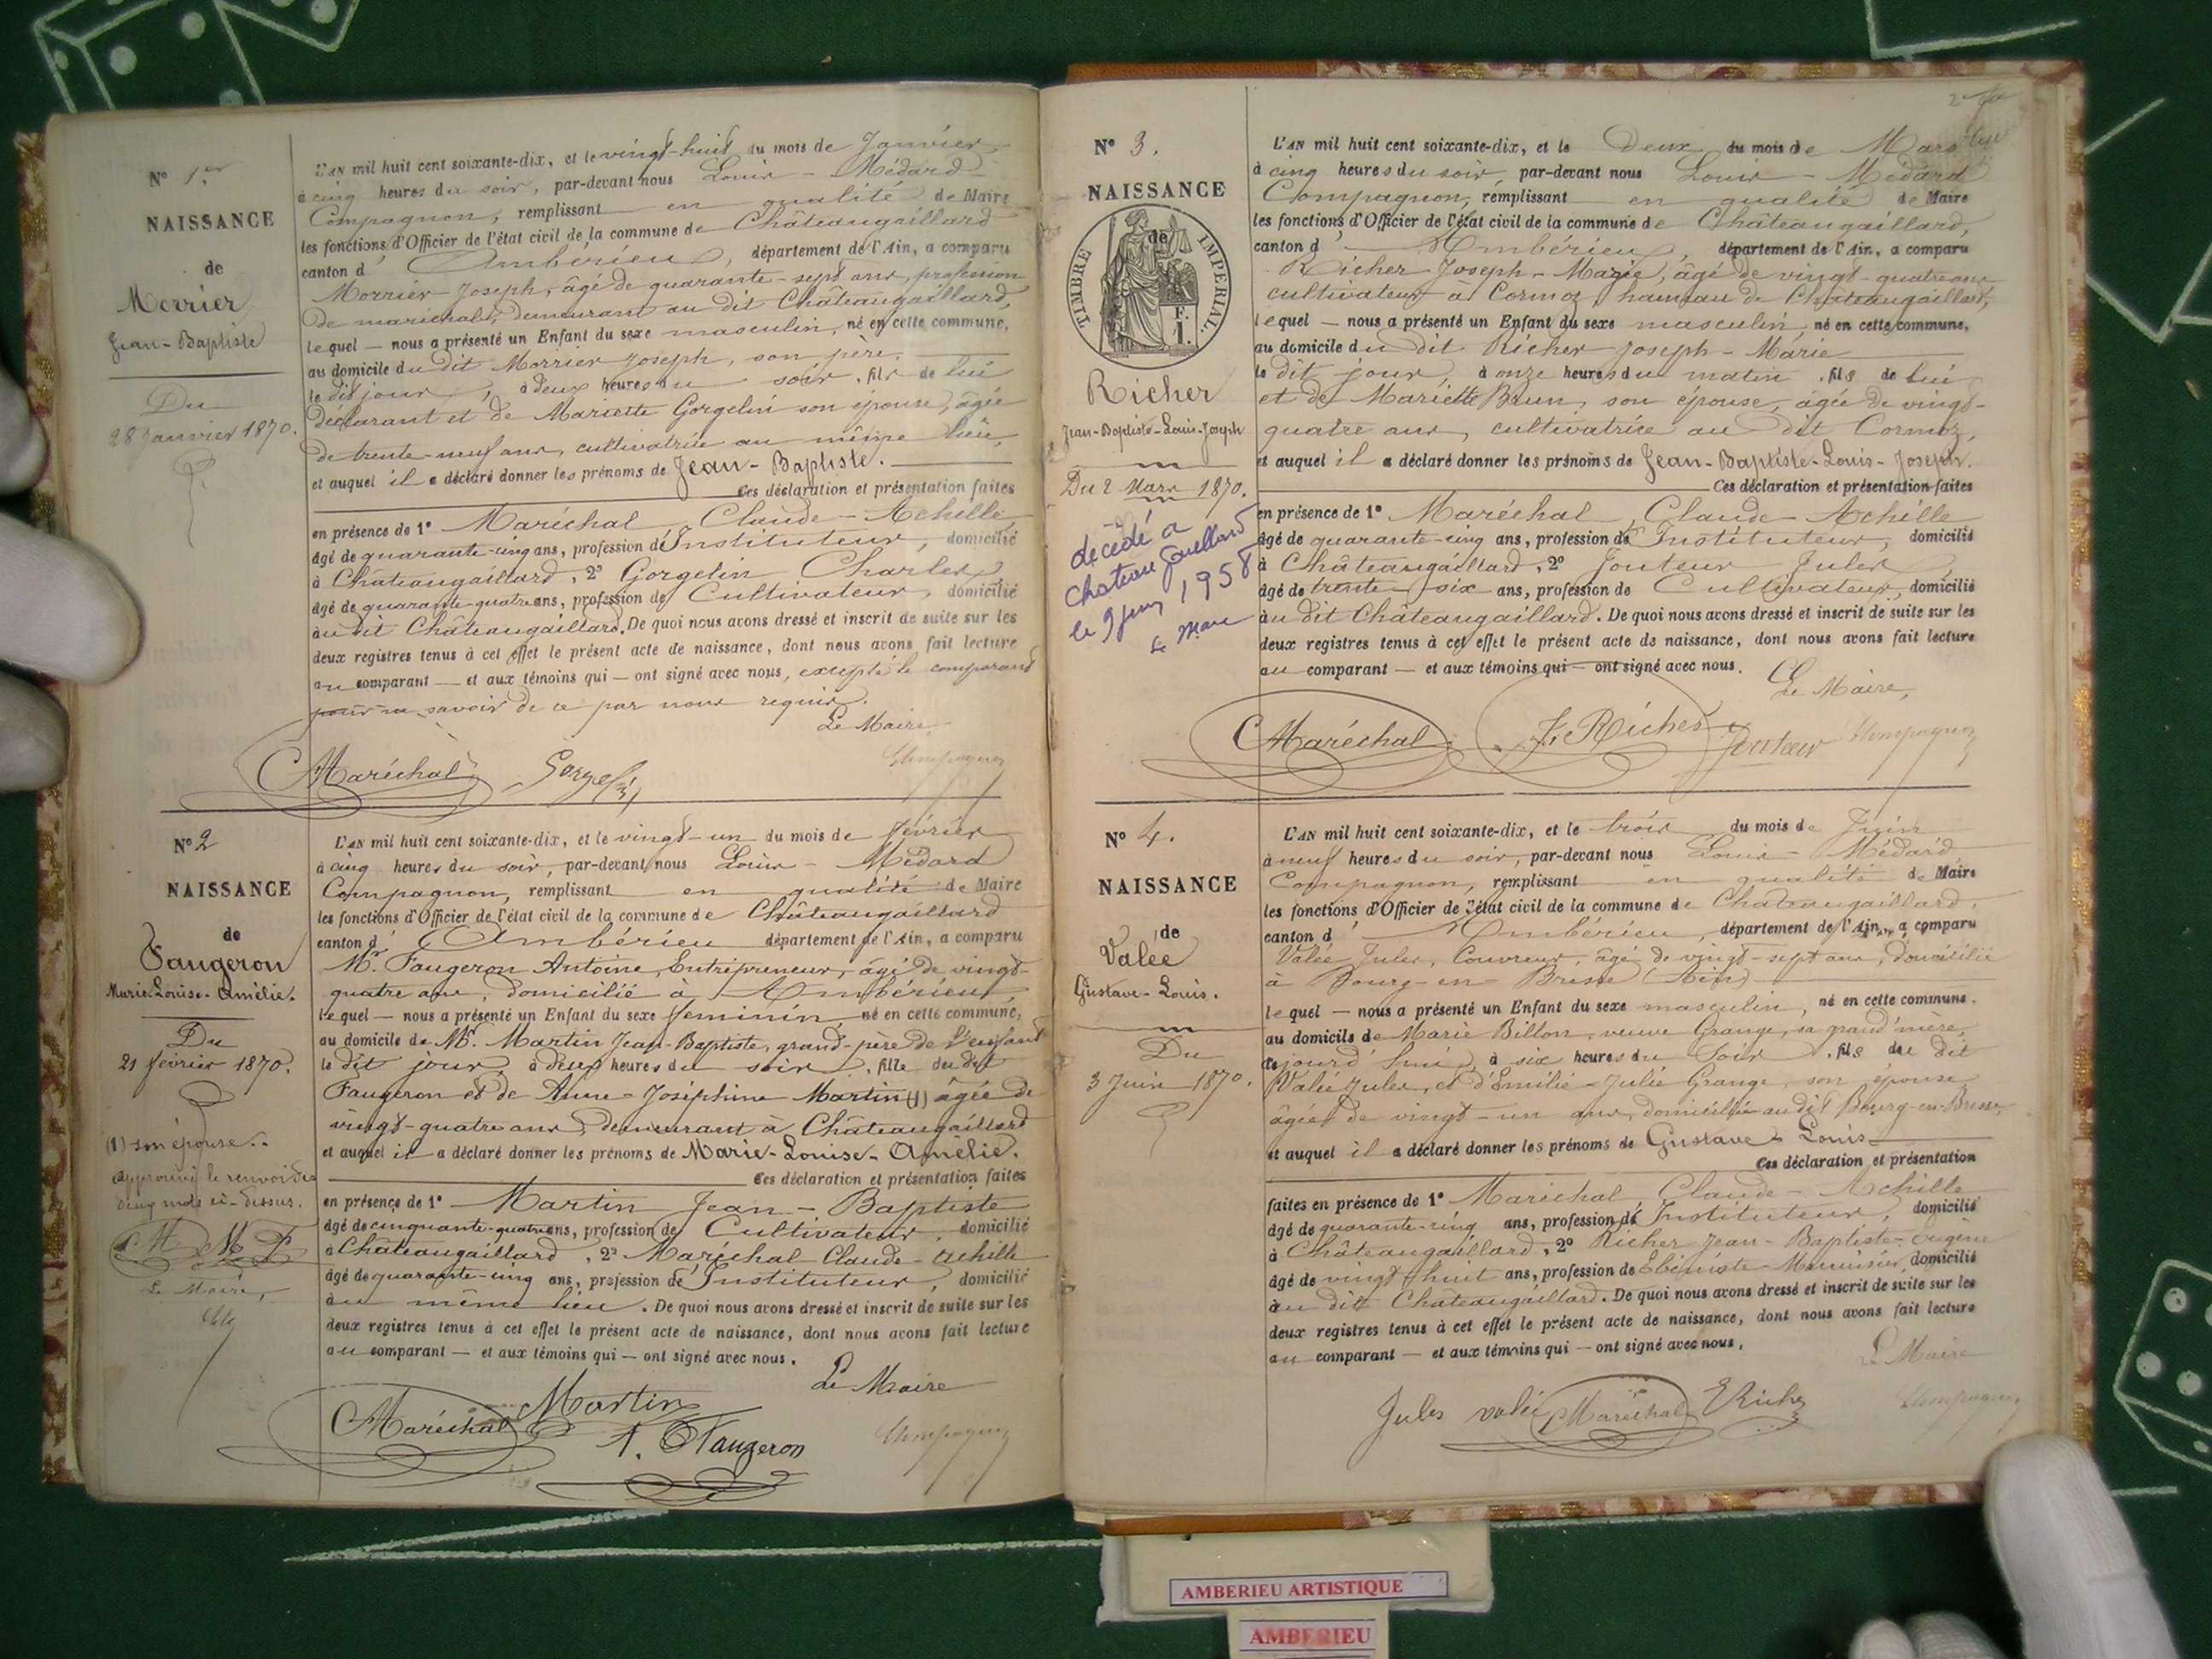 N° 1er
NAISSANCE
de
Morrier
Jean-Baptiste
Du
28 Janvier 1870.
L'AN mil huit cent soixante-dix, et le vingt-huit du mois de Janvier
à cinq heures du soir, par-devant nous Louis-Médard
Compagnon, remplissant en qualité de Maire
les fonctions d'Officier de l'état civil de la commune de Châteaugaillard
canton d'Ambérieu, département de l'Ain, a comparu
Morrier Joseph, âgé de quarante-sept ans, profession
de maréchal, demeurant au dit Châteaugaillard,
lequel — nous a présenté un Enfant du sexe masculin, né en cette commune,
au domicile du dit Morrier Joseph, son père,
le dit jour, à deux heures du soir, fils de lui
déclarant et de Mariette Gorgelin son épouse, âgée
de trente-neuf ans, cultivatrice au même lieu,
et auquel il a déclaré donner les prénoms de Jean-Baptiste.
Ces déclaration et présentation faites
en présence de 1° Maréchal, Claude-Achille
âgé de quarante-cinq ans, profession d'Instituteur, domicilié
à Châteaugaillard, 2° Gorgelin Charles,
âgé de quarante-quatre ans, profession de Cultivateur, domicilié
au dit Châteaugaillard. De quoi nous avons dressé et inscrit de suite sur les
deux registres tenus à cet effet le présent acte de naissance, dont nous avons fait lecture
au comparant — et aux témoins qui — ont signé avec nous, excepté le comparant
pour ne savoir de ce par nous requis.
Le Maire
CAMaréchal Gorgelin Compagnon
N° 2
NAISSANCE
de
Faugeron
Marie-Louise-Amélie.
Du
21 février 1870.
(1) son épouse.
Approuvé le renvoi des
deux mots ci-dessus.
Le Maire,
L'AN mil huit cent soixante-dix, et le vingt-un du mois de février
à cinq heures du soir, par-devant nous Louis-Médard
Compagnon, remplissant en qualité de Maire
les fonctions d'Officier de l'état civil de la commune de Châteaugaillard
canton d'Ambérieu département de l'Ain, a comparu
Mr. Faugeron Antoine, Entrepreneur, âgé de vingt-
quatre ans, domicilié à Ambérieu,
lequel — nous a présenté un Enfant du sexe féminin, né en cette commune,
au domicile de Mr. Martin Jean-Baptiste, grand-père de l'enfant
le dit jour, à deux heures du soir, fille du dit
Faugeron et de Anne-Joséphine Martin (1) âgée de
vingt-quatre ans, demeurant à Châteaugaillard
et auquel il a déclaré donner les prénoms de Marie-Louise-Amélie.
Ces déclaration et présentation faites
en présence de 1° Martin Jean-Baptiste
âgé de cinquante-quatre ans, profession de Cultivateur, domicilié
à Châteaugaillard, 2° Maréchal Claude-Achille
âgé de quarante-cinq ans, profession d'Instituteur, domicilié
au même lieu. De quoi nous avons dressé et inscrit de suite sur les
deux registres tenus à cet effet le présent acte de naissance, dont nous avons fait lecture
au comparant — et aux témoins qui — ont signé avec nous.
Le Maire
CAMaréchal Martin A. Faugeron Compagnon
N° 3.
NAISSANCE
de
TIMBRE IMPÉRIAL.
F.
1.
Richer
Jean-Baptiste-Louis-Joseph
Du 2 Mars 1870.
décédé à
Chateau Gaillard
1958
Le Maire
L'AN mil huit cent soixante-dix, et le Deux du mois de Mars
à cinq heures du soir, par-devant nous Louis-Médard
Compagnon, remplissant en qualité de Maire
les fonctions d'Officier de l'état civil de la commune de Châteaugaillard,
canton d'Ambérieu, département de l'Ain, a comparu
Richer Joseph-Marie, âgé de vingt-quatre ans
cultivateur à Cormoz, hameau de Châteaugaillard,
lequel — nous a présenté un Enfant du sexe masculin, né en cette commune,
au domicile du dit Richer Joseph-Marie
le dit jour, à onze heures du matin, fils de lui
et de Mariette Brun, son épouse, âgée de vingt-
quatre ans, cultivatrice au dit Cormoz,
et auquel il a déclaré donner les prénoms de Jean-Baptiste-Louis-Joseph.
Ces déclaration et présentation faites
en présence de 1° Maréchal, Claude-Achille
âgé de quarante-cinq ans, profession d'Instituteur, domicilié
à Châteaugaillard, 2° Jouteur Jules,
âgé de trente-six ans, profession de Cultivateur, domicilié
au dit Châteaugaillard. De quoi nous avons dressé et inscrit de suite sur les
deux registres tenus à cet effet le présent acte de naissance, dont nous avons fait lecture
au comparant — et aux témoins qui — ont signé avec nous.
Le Maire,
CAMaréchal J. Richer Jouteur Compagnon
N° 4.
NAISSANCE
de
Valée
Gustave-Louis.
Du
3 Juin 1870.
L'AN mil huit cent soixante-dix, et le trois du mois de Juin
à neuf heures du soir, par-devant nous Louis-Médard
Compagnon, remplissant en qualité de Maire
les fonctions d'Officier de l'état civil de la commune de Châteaugaillard,
canton d'Ambérieu, département de l'Ain, a comparu
Valée Jules, Couvreur, âgé de vingt-sept ans, domicilié
à Bourg-en-Bresse (Ain)
lequel — nous a présenté un Enfant du sexe masculin, né en cette commune,
au domicile de Marie Billon, veuve Grange, sa grand'mère,
ce jourd'hui, à six heures du soir, fils du dit
Valée Jules, et d'Emilie-Julie Grange, son épouse
âgée de vingt-un ans, domiciliée au dit Bourg-en-Bresse,
et auquel il a déclaré donner les prénoms de Gustave-Louis
Ces déclaration et présentation
faites en présence de 1° Maréchal, Claude-Achille
âgé de quarante-cinq ans, profession d'Instituteur, domicilié
à Châteaugaillard, 2° Richer Jean-Baptiste-Eugène
âgé de vingt-huit ans, profession de Ebéniste-Menuisier, domicilié
au dit Châteaugaillard. De quoi nous avons dressé et inscrit de suite sur les
deux registres tenus à cet effet le présent acte de naissance, dont nous avons fait lecture
au comparant — et aux témoins qui — ont signé avec nous.
Le Maire
Jules valée CAMaréchal ERicher Compagnon
AMBERIEU ARTISTIQUE
AMBERIEU